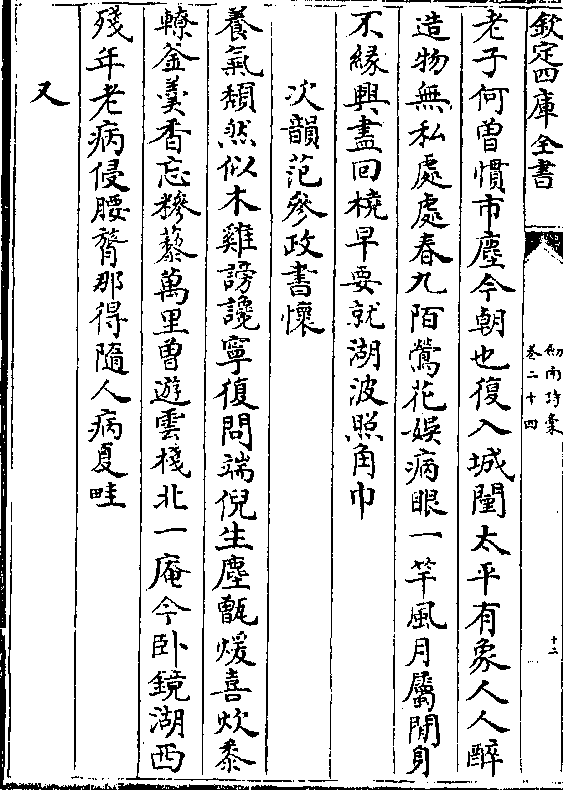 欽定四庫全書
劒南詩槀
卷二十四
十二
老子何曽慣市塵今朝也復入城闉太平有象人人醉
造物無私處處春九陌鶯花娱病眼一竿風月屬閒身
不緣興盡回橈早要就湖波照角巾
次韻范參政書懷
養氣頽然似木雞謗讒寧復問端倪生塵甑煖喜炊黍
轑釜羮香忘糝藜萬里曽遊雲棧北一庵今卧鏡湖西
殘年老病侵腰膂那得隨人病夏畦
又